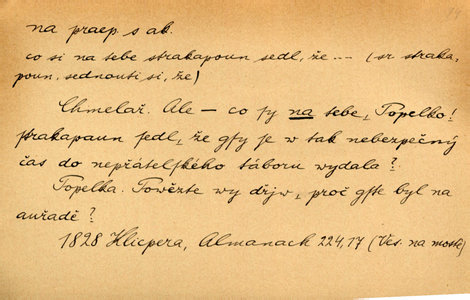 na praep. s ak.
co si na tebe strakapoun sedl, že --- (sr. straka,
poun, sednouti si, že)
Chmelař. Ale – co ſy na tebe, Popelko!
ſtrakapaun ſedl, že gſy ſe w tak nebezpečný
čas do nepřátelſkého táboru wydala?
Popelka. Powězte wy dřjw, proč gſte byl na
auřadě?
1828 Klicpera, Almanach 224,17 (Ves. na mostě)